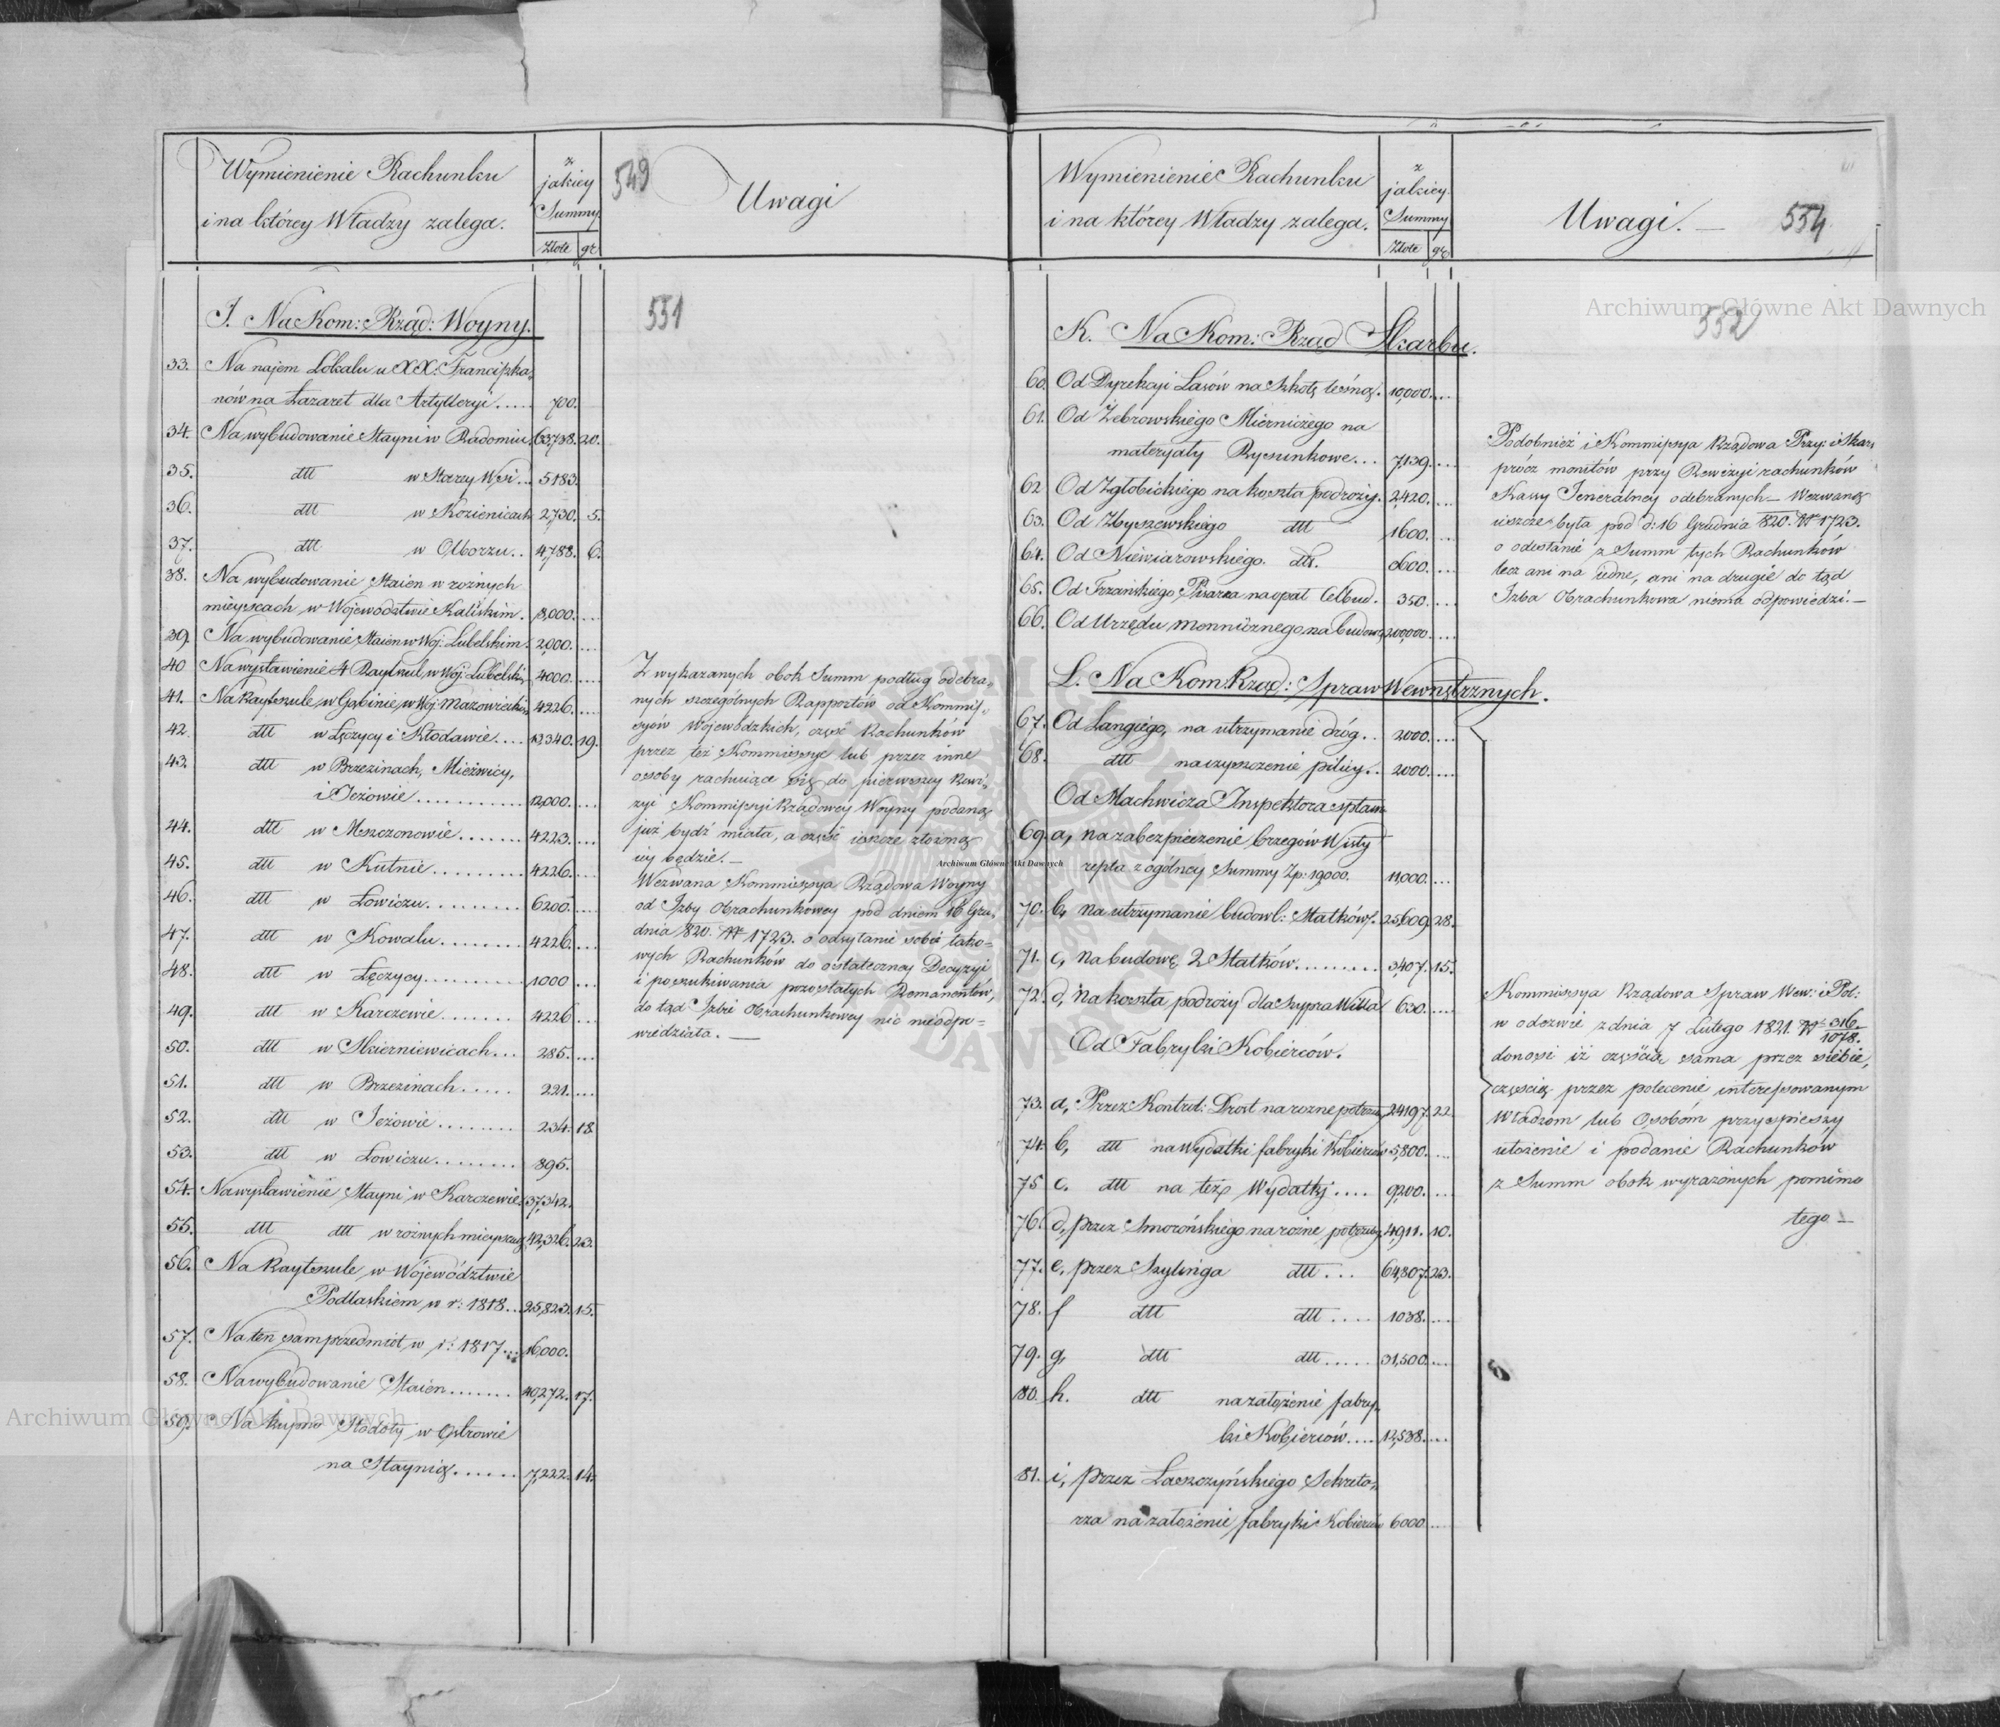 Wymienienie Rachunku
i na którey Władzy zalega.
z
jakiey
Summy
Złote gr
549
Uwagi
551
J. Na Kom: Rząd: Woyny.
33. Na najem Lokalu u XX. Franciszka=
nów na Łazaret dla Artylleryi ..... 700.
34. Na wybudowanie Stayni w Radomiu. 63,738. 20.
35. dtt w Starey Wsi ... 5183.
36. dtt w Kozienicach 2,730. 5.
37. dtt w Olborzu.. 4,788. 6.
38. Na wybudowanie Staien w rożnych
mieyscach w Woiewodztwie Kaliskim. 8,000. ...
39. Na wybudowanie Staien w Woj: Lubelskim. 2,000. ...
40 Na wystawienie 4 Raytszul w Woj: Lubelski, 4000. ....
41. Na Raytszule w Gąbinie w Woj: Mazowieckim 4226. ...
42. dtt w Łęczycy i Kłodawie .... 13,340. 19.
43. dtt w Brzezinach, Mieżwicy,
i Jeżowie ............ 12,000. ...
44. dtt w Mszczonowie ....... 4223. ...
45. dtt w Kutnie ......... 4226. ...
46. dtt w Łowiczu .......... 6200. ....
47. dtt w Kowalu ........ 4226. ...
48. dtt w Łęczycy .......... 1000 ....
49. dtt w Karczewie ....... 4226 ....
50. dtt w Skierniewicach ... 285. ...
51. dtt w Brzezinach ..... 221. ...
52. dtt w Jeżowie ........ 234. 18.
53. dtt w Łowiczu ......... 895.
54. Na wystawienie Stayni w Karczewie 37,342.
55. dtt dtt w rożnych mieyscach 42,326. 23.
56. Na Raytszule w Województwie
Podlaskiem w r: 1818 .. 25,823. 15.
57. Na ten sam przedmiot w r: 1817 ... 16,000.
58. Na wybudowanie Staien ....... 40,272. 17.
59. Na kupno Stodoły w Ostrowie
na Staynią ...... 7,222. 14.
Z wykazanych obok Summ podług odebra=
nych szczególnych Rapportów od Kommis=
syów Wojewodzkich, część Rachunków
przez też Kommissye lub przez inne
osoby rachujące się do pierwszey Rewi=
zyi Kommissyi Rządowey Woyny podaną
już bydź miała, a część ieszcze złożoną
iey będzie. —
Wezwana Kommissya Rządowa Woyny
od Izby Obrachunkowey pod dniem 16 Gru=
dnia 820. Nr 1723. o odsyłanie sobie tako=
wych Rachunków do ostateczney Decyzyi
i poszukiwania pozostałych Remanentów,
do tąd Izbie Obrachunkowey nic nieodpo=
wiedziała. —
Wymienienie Rachunku
i na którey Władzy zalega.
z
jakiey
Summy
Złote gr
Uwagi. —
554
552
K. Na Kom: Rząd Skarbu.
60. Od Dyrekcyi Lasów na Szkołę leśną. 10,000. ...
61. Od Żebrowskiego Mierniczego na
materyały Rysunkowe ... 7,139. ....
62 Od Zgłobickiego na koszta podroży. 2,420. ...
63. Od Zbyszewskiego dtt 1600. ...
64. Od Niewiarowskiego. dtt. 600. ...
65. Od Trzańskiego Pisarza na opał Celbud. 350. ...
66. Od Urzędu Mennicznego na budow. 200,000. ...
L. Na Kom: Rząd: Spraw Wewnętrznych.
67. Od Langiego, na utrzymanie dróg .. 2000. ...
68. dtt na czyszczenie pilicy .. 2000. ...
Od Machwicza Inspektora spław.
69. a, na zabezpieczenie brzegów Wisły
repta z ogólney Summy Zp: 19,000. 11,000. ...
70. b, na utrzymanie budowl: Statków. 25,609. 28.
71. c, na budowę 2 Statków ......... 3,407. 15.
72. d, na koszta podroży dla Szypra Willa 630. ...
Od Fabryki Kobierców.
73. a, Przez Kontrol: Drost na rozne potrzeby 24197. 22.
74. b, dtt na wydatki fabryki Kobierców 5,800. ...
75 c. dtt na też Wydatki .... 9,200. ...
76. d, przez Smorońskiego na rożne potrzeby 4,911. 10.
77. e, przez Szylinga dtt ... 64,807. 23.
78. f dtt dtt .... 1038. ....
79. g, dtt dtt ..... 31,500. ...
80. h. dtt na założenie fabry=
ki Kobierców .... 12,538. ...
81. i, przez Łaszczyńskiego Sekreta=
rza na założenie fabryki Kobierców 6000. ...
Podobnież i Kommissya Rządowa Przy: i Skar:
prócz monitów przy Rewizyi rachunków
Kassy Jeneralney odebranych — Wezwaną
ieszcze była pod d: 16 Grudnia 820. Nr 1723.
o odesłanie z Summ tych Rachunków
lecz ani na iedne, ani na drugie do tąd
Izba Obrachunkowa niema odpowiedzi. —
Kommissya Rządowa Spraw Wew: i Pol:
w odezwie z dnia 7 Lutego 1821. Nr 316/1078.
donosi iż częścią sama przez siebie,
częścią przez polecenie interessowanym
Władzom lub Osobom przyspieszy
ułożenie i podanie Rachunków
z Summ obok wyrażonych pomimo
tego —
Archiwum Główne Akt Dawnych
Archiwum Główne Akt Dawnych
Archiwum Główne Akt Dawnych